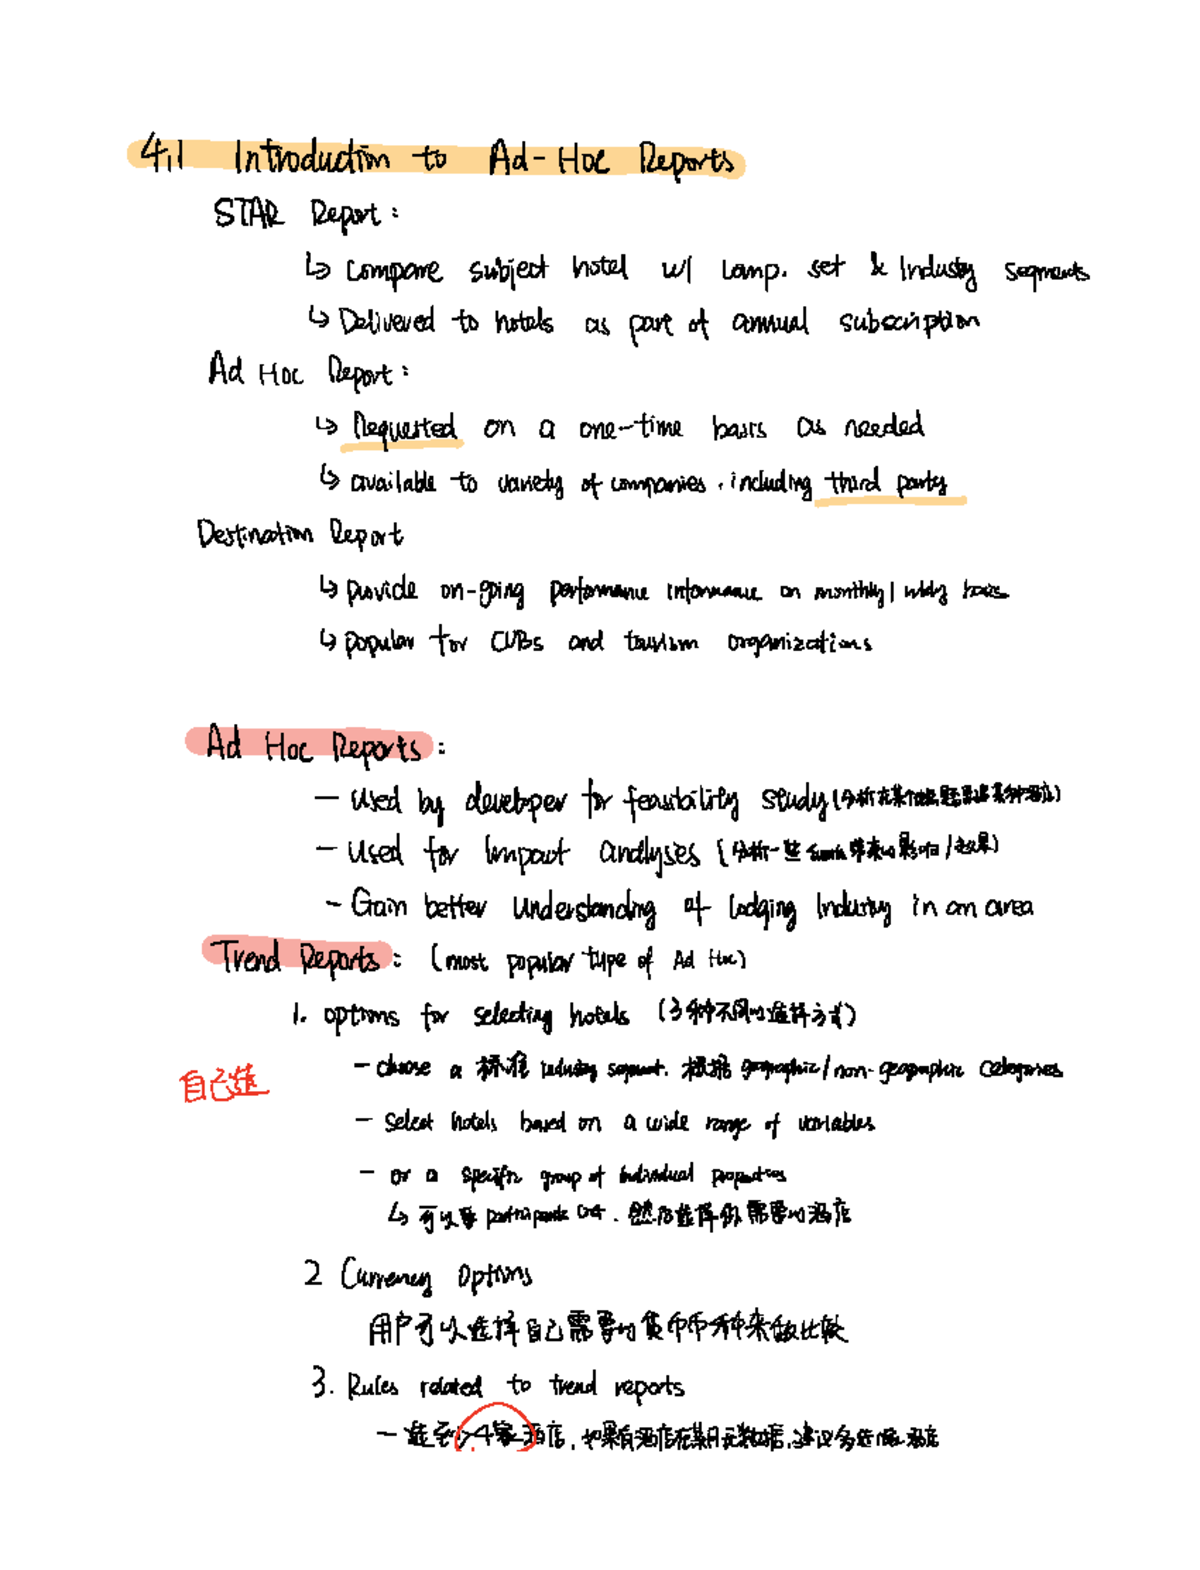 4.1 Introduction to Ad-Hoc Reports
STAR Report:
↳ Compare subject hotel w/ Comp. set & Industry segments
↳ Delivered to hotels as part of annual subscription
Ad Hoc Report:
↳ Requested on a one-time basis as needed
↳ available to variety of companies, including third party
Destination Report
↳ provide on-going performance informance on monthly / wkly basis
↳ popular for CVBs and tourism organizations
Ad Hoc Reports:
— Used by developer for feasibility study (分析在某个地
— Used for Impact analyses (分析一些 带来的影响/效果)
— Gain better understanding of lodging Industry in an area
Trend Reports: (most popular type of Ad Hoc)
1. options for selecting hotels (3种不同的选择方式)
— choose a 标准 industry segment. 根据 geographic/non-geographic categories
自己选
— Select hotels based on a wide range of variables
— or a specific group of individual properties
↳ 可以要 participants list. 然后选择你需要的酒店
2 Currency Options
用户可以选择自己需要的货币币种来做比较
3. Rules related to trend reports
— 选至少>4家酒店, 如果有酒店在某月无数据, 建议多选 酒店